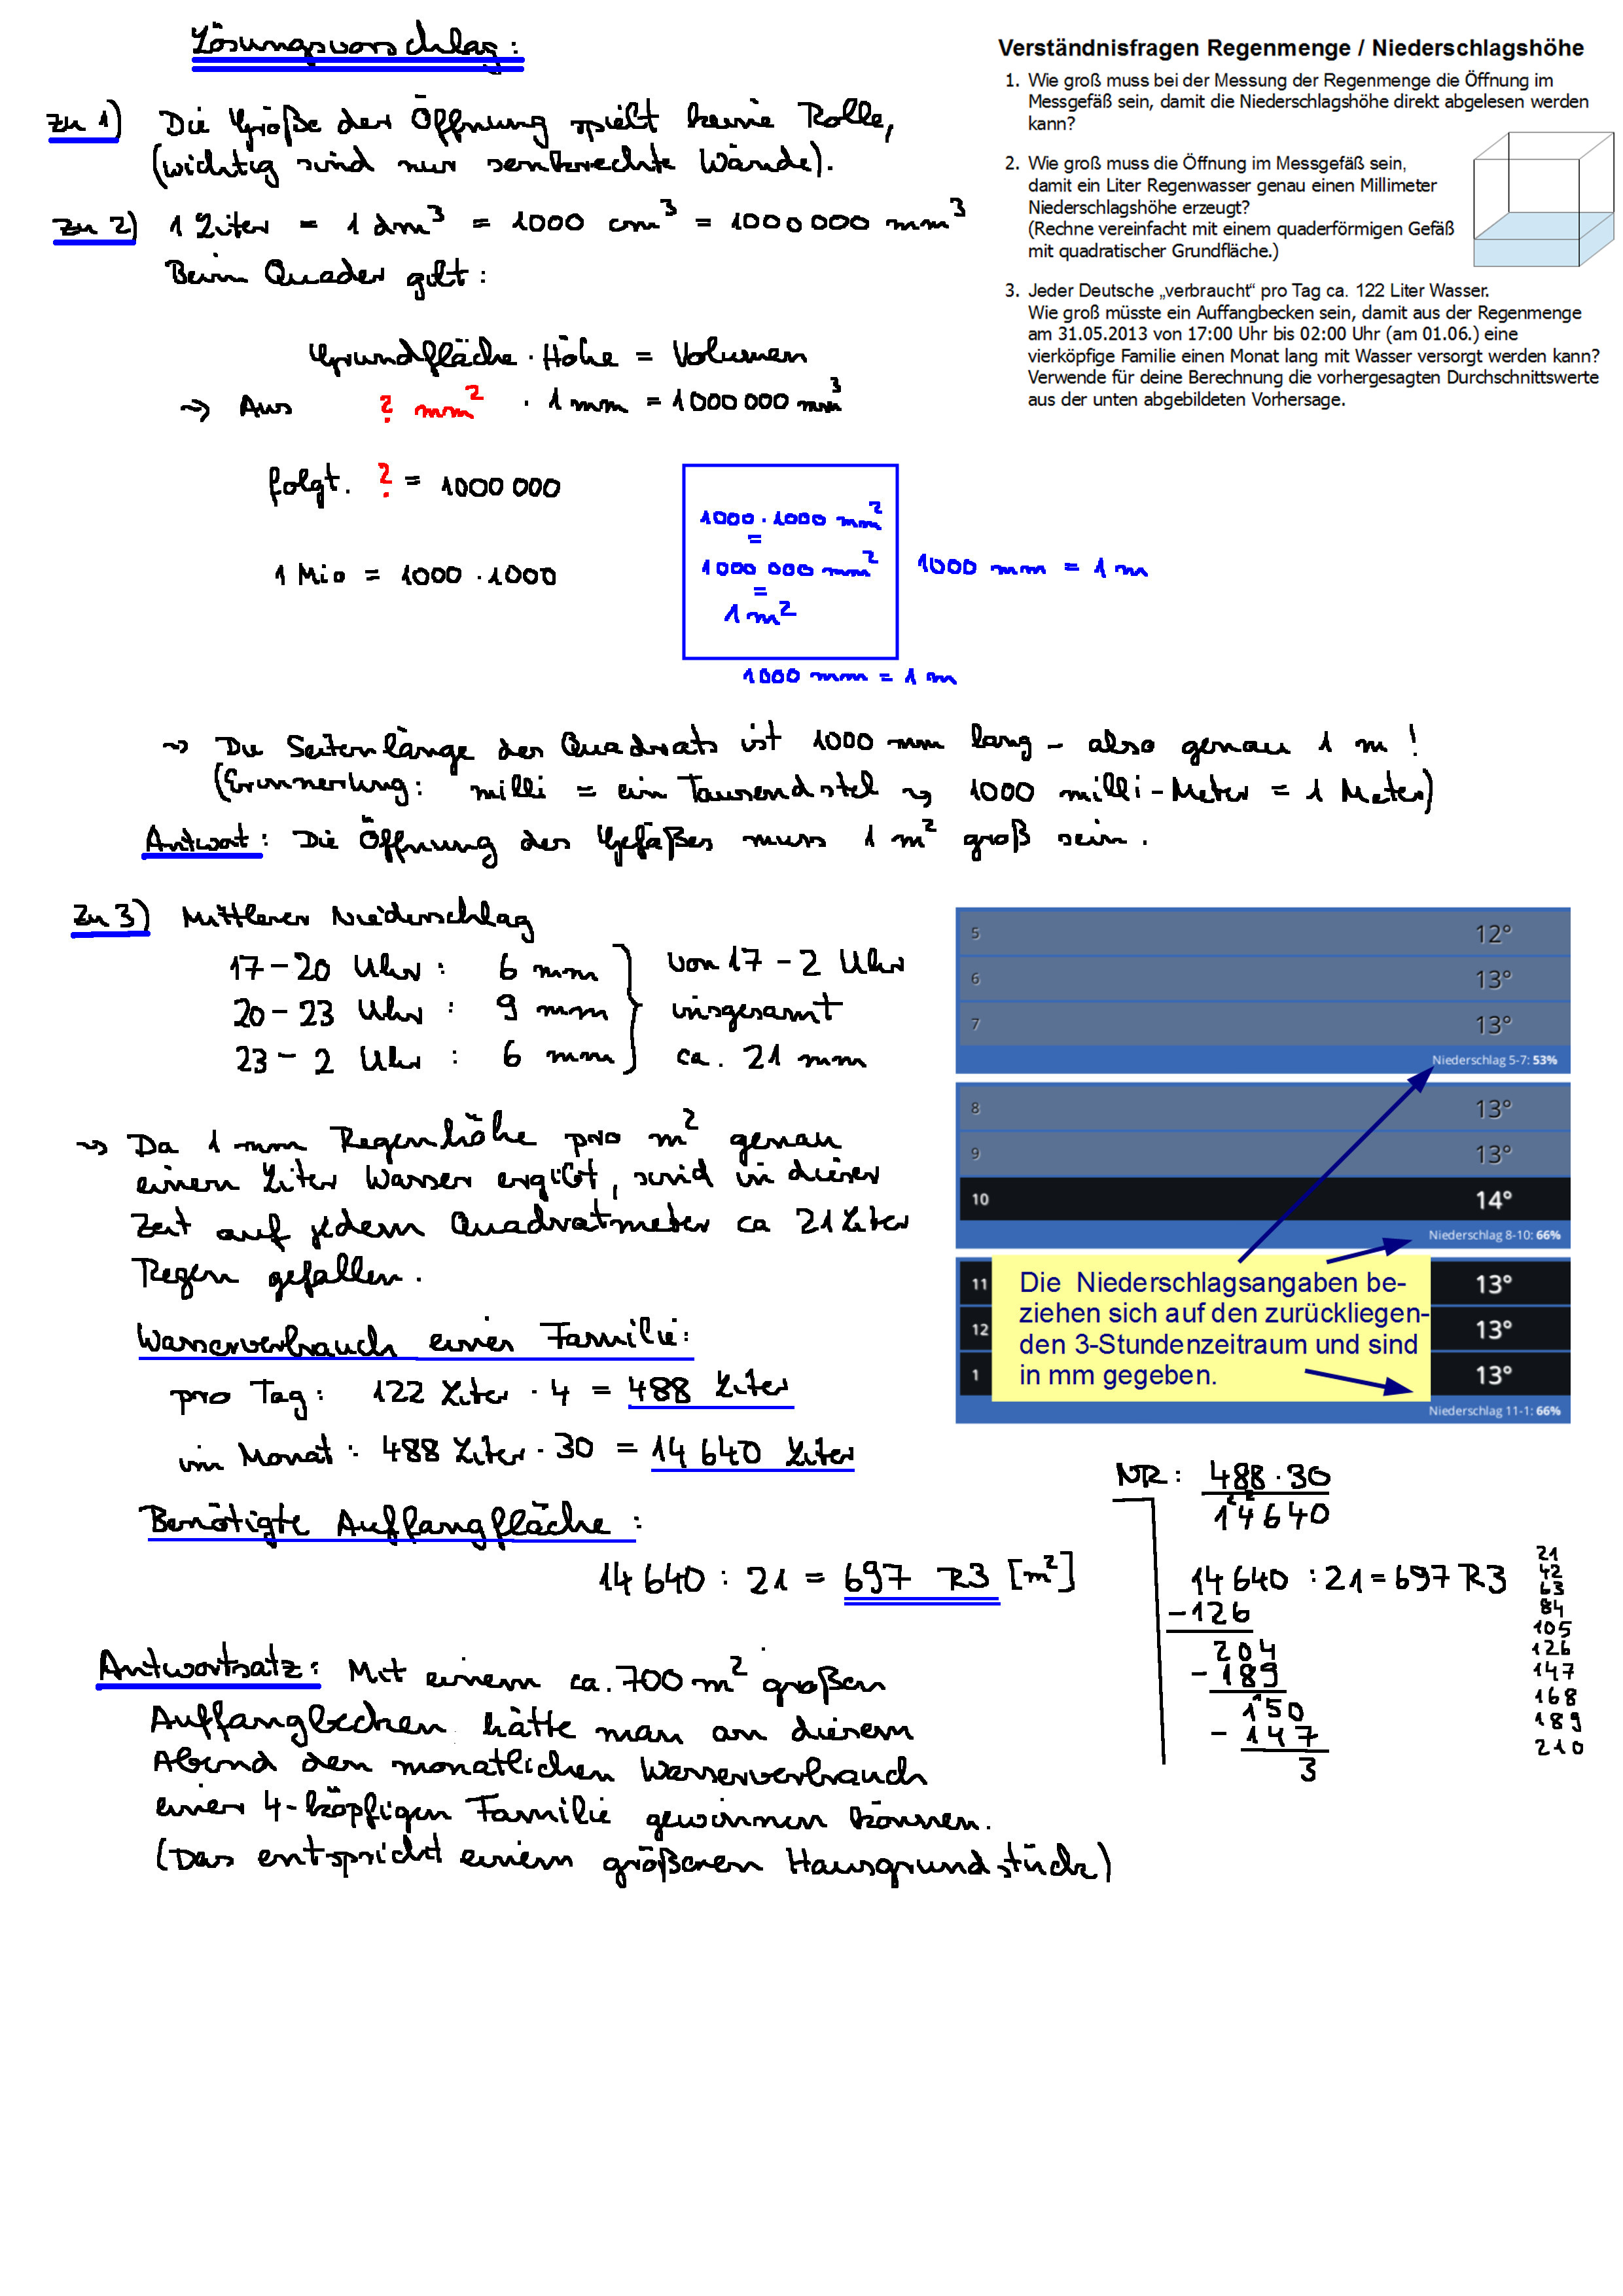 Lösungsvorschlag:
zu 1) Die Größe der Öffnung spielt keine Rolle,
(wichtig sind nur senkrechte Wände).
zu 2) 1 Liter = 1 dm³ = 1000 cm³ = 1000 000 mm³
Beim Quader gilt:
Grundfläche · Höhe = Volumen
→ Aus ? mm² · 1 mm = 1000 000 mm³
folgt. ? = 1000 000
1 Mio = 1000 · 1000
1000 · 1000 mm²
=
1000 000 mm²
=
1 m²
1000 mm = 1 m
1000 mm = 1 m
→ Die Seitenlänge des Quadrats ist 1000 mm lang – also genau 1 m!
(Erinnerung: milli = ein Tausendstel → 1000 milli-Meter = 1 Meter)
Antwort: Die Öffnung des Gefäßes muss 1 m² groß sein.
Verständnisfragen Regenmenge / Niederschlagshöhe
1. Wie groß muss bei der Messung der Regenmenge die Öffnung im
Messgefäß sein, damit die Niederschlagshöhe direkt abgelesen werden
kann?
2. Wie groß muss die Öffnung im Messgefäß sein,
damit ein Liter Regenwasser genau einen Millimeter
Niederschlagshöhe erzeugt?
(Rechne vereinfacht mit einem quaderförmigen Gefäß
mit quadratischer Grundfläche.)
3. Jeder Deutsche „verbraucht“ pro Tag ca. 122 Liter Wasser.
Wie groß müsste ein Auffangbecken sein, damit aus der Regenmenge
am 31.05.2013 von 17:00 Uhr bis 02:00 Uhr (am 01.06.) eine
vierköpfige Familie einen Monat lang mit Wasser versorgt werden kann?
Verwende für deine Berechnung die vorhergesagten Durchschnittswerte
aus der unten abgebildeten Vorhersage.
zu 3) Mittlerer Niederschlag
17 – 20 Uhr: 6 mm
20 – 23 Uhr: 9 mm
23 – 2 Uhr: 6 mm
von 17 – 2 Uhr
insgesamt
ca. 21 mm
→ Da 1 mm Regenhöhe pro m² genau
einem Liter Wasser ergibt, sind in dieser
Zeit auf jedem Quadratmeter ca 21 Liter
Regen gefallen.
Wasserverbrauch einer Familie:
pro Tag: 122 Liter · 4 = 488 Liter
im Monat: 488 Liter · 30 = 14 640 Liter
Benötigte Auffangfläche:
14 640 : 21 = 697 R3 [m²]
Antwortsatz: Mit einem ca. 700 m² großen
Auffangbecken hätte man an diesem
Abend den monatlichen Wasserverbrauch
einer 4-köpfigen Familie gewinnen können.
(Das entspricht einem größeren Hausgrundstück)
5 12°
6 13°
7 13°
Niederschlag 5-7: 53%
8 13°
9 13°
10 14°
Niederschlag 8-10: 66%
11 13°
12 13°
1 13°
Niederschlag 11-1: 66%
Die Niederschlagsangaben be-
ziehen sich auf den zurückliegen-
den 3-Stundenzeitraum und sind
in mm gegeben.
NR: 488 · 30
2 2
14640
14 640 : 21 = 697 R3
-126
204
- 189
1
150
- 147
3
21
42
63
84
105
126
147
168
189
210